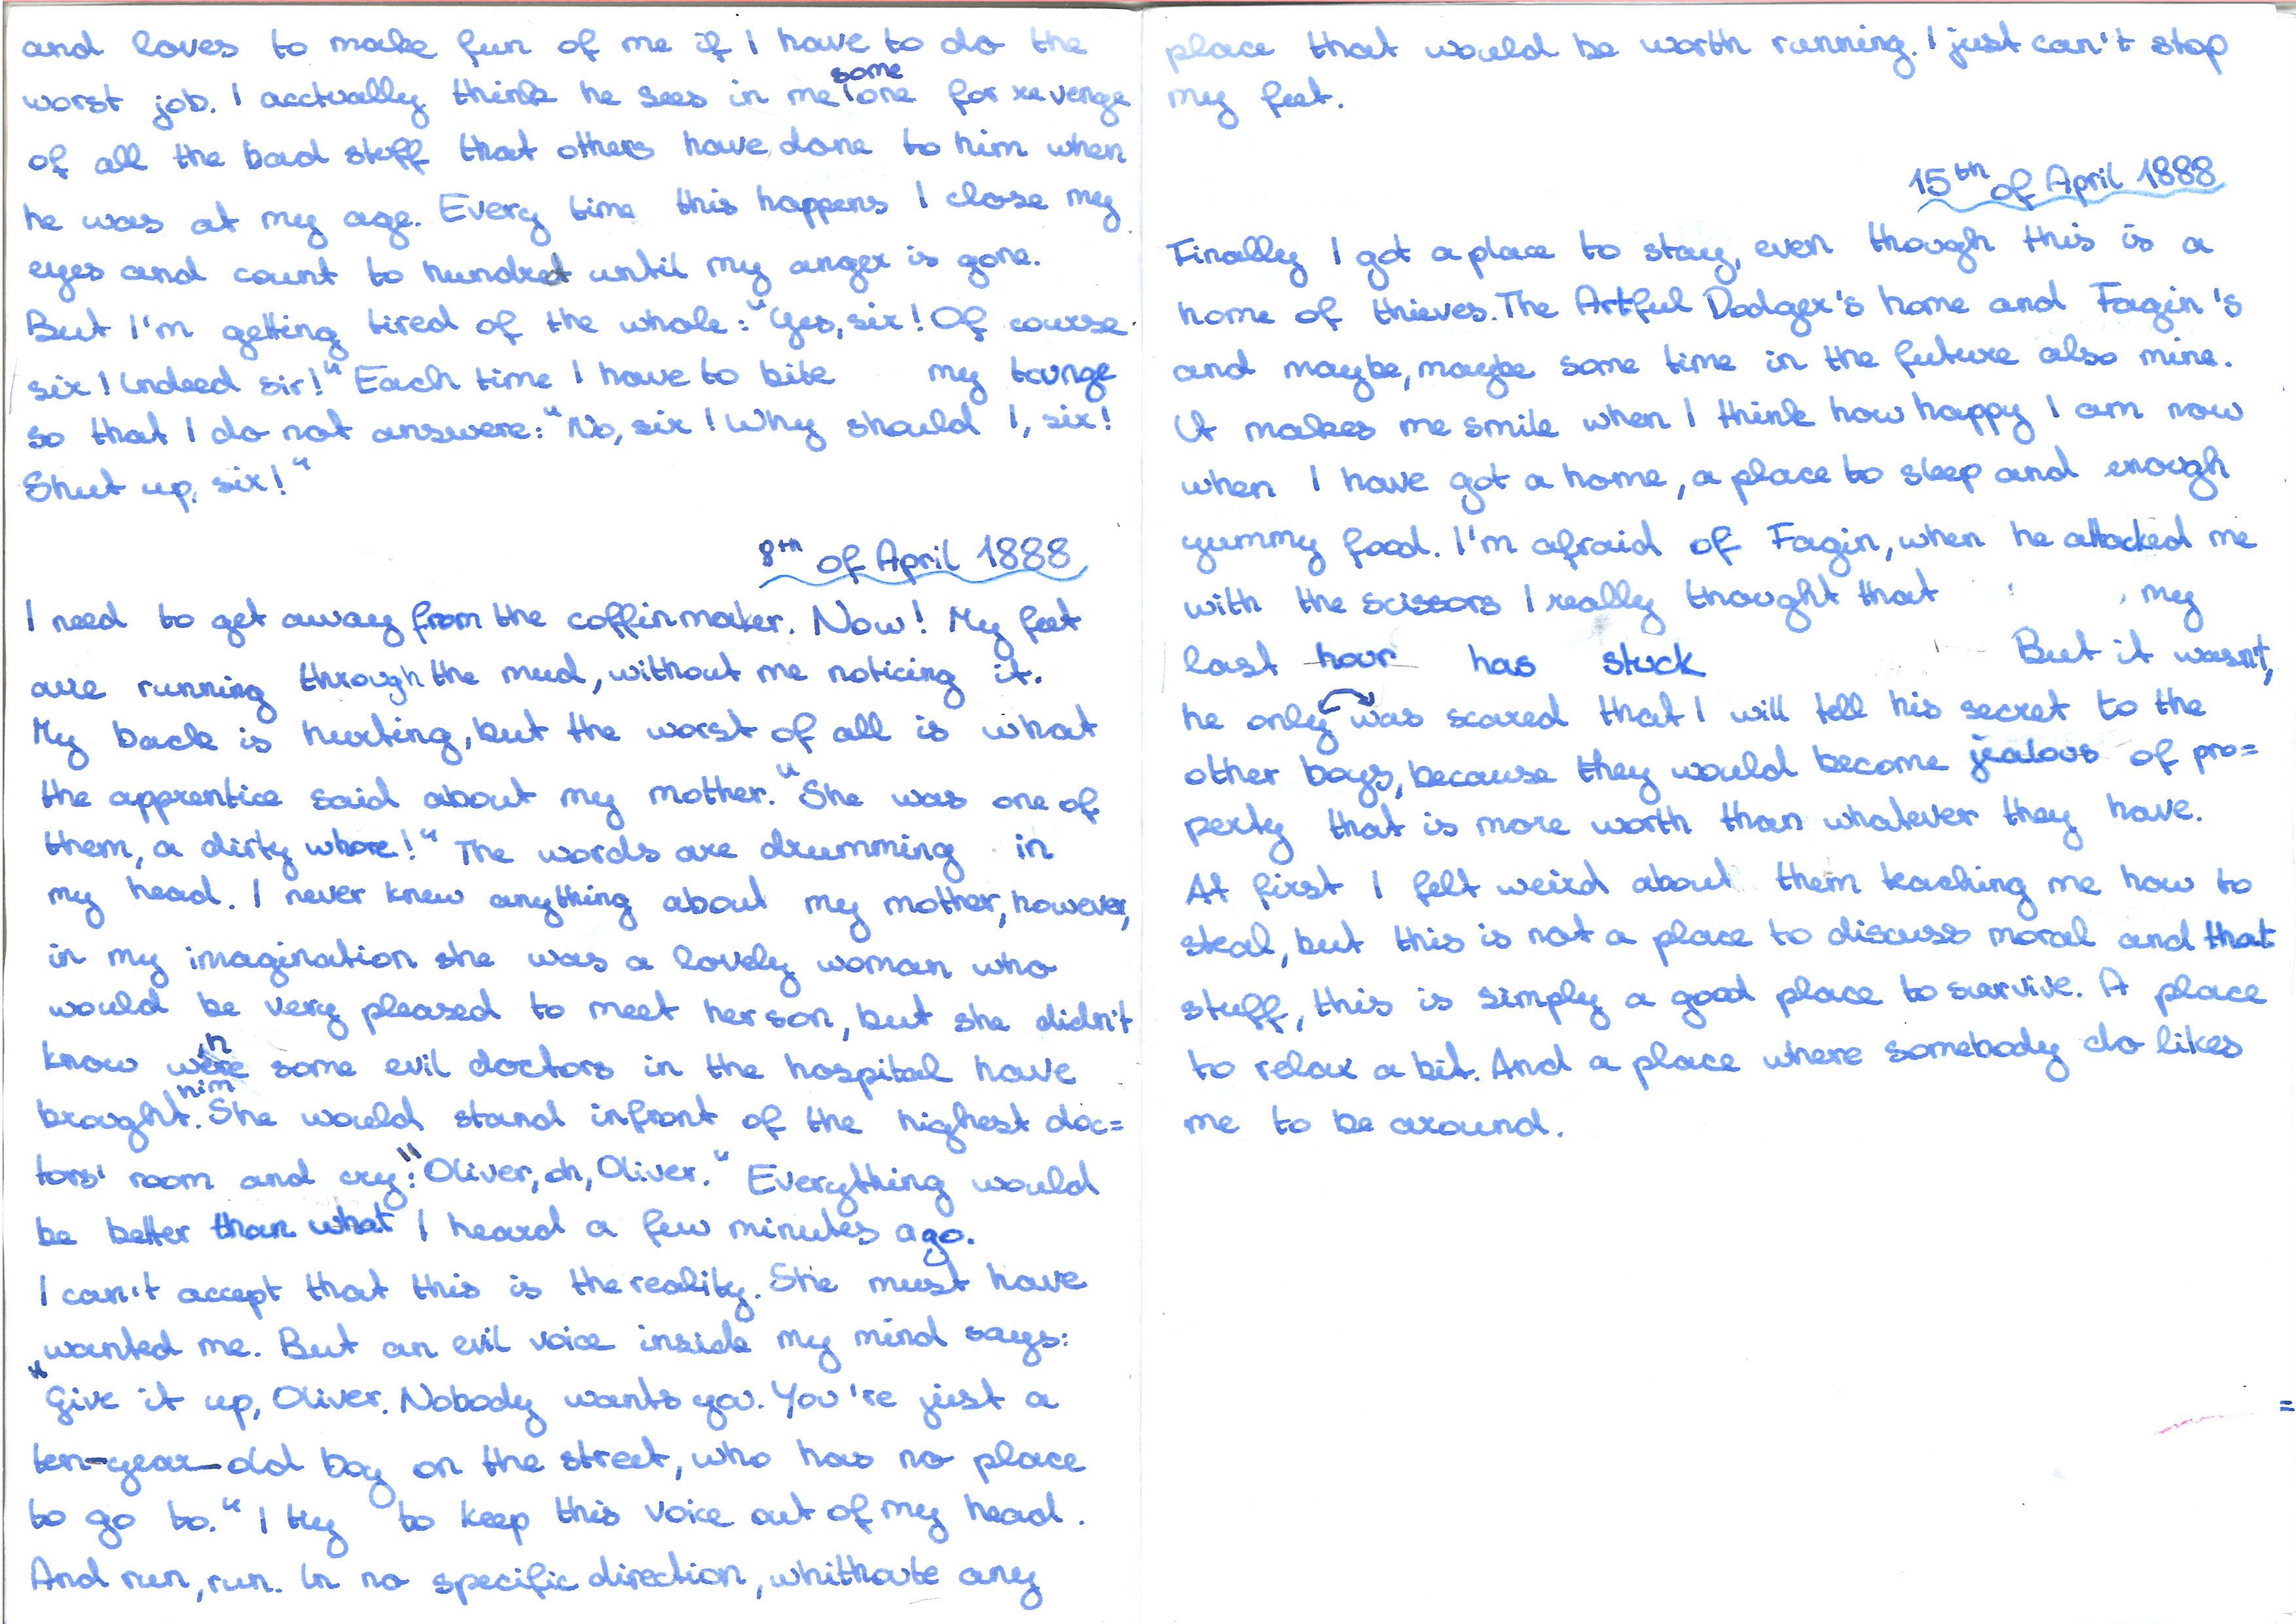 and loves to make fun of me if I have to do the
worst job. I acctually think he sees in me someone for revenge
of all the bad stuff that others have done to him when
he was at my age. Every time this happens I close my
eyes and count to hundret until my anger is gone.
But I'm getting tired of the whole: "Yes, sir! Of course
sir! Indeed sir!" Each time I have to bite my tounge
so that I do not answere: "No, sir! Why should I, sir!
Shut up, sir!"
8th of April 1888
I need to get away from the coffinmaker. Now! My feet
are running through the mud, without me noticing it.
My back is hurting, but the worst of all is what
the apprentice said about my mother. "She was one of
them, a dirty whore!" The words are drumming in
my head. I never knew anything about my mother, however,
in my imagination she was a lovely woman who
would be very pleased to meet her son, but she didn't
know where some evil doctors in the hospital have
brought him. She would stand infront of the highest doc=
tors' room and cry: "Oliver, oh, Oliver." Everything would
be better than what I heard a few minutes ago.
I can't accept that this is the reality. She must have
wanted me. But an evil voice inside my mind says:
"Give it up, Oliver. Nobody wants you. You're just a
ten-year-old boy on the street, who has no place
to go to." I try to keep this voice out of my head.
And run, run. In no specific direction, whithoute any
place that would be worth running. I just can't stop
my feet.
15th of April 1888
Finally I got a place to stay, even though this is a
home of thieves. The Artful Dodger's home and Fagin's
and maybe, maybe some time in the future also mine.
It makes me smile when I think how happy I am now
when I have got a home, a place to sleep and enough
yummy food. I'm afraid of Fagin, when he attacked me
with the scissors I really thought that my
last hour has stuck But it wasn't,
he only was scared that I will tell his secret to the
other boys, because they would become jealous of pro=
perty that is more worth than whatever they have.
At first I felt weird about them teaching me how to
steal, but this is not a place to discuss moral and that
stuff, this is simply a good place to survive. A place
to relax a bit. And a place where somebody do likes
me to be around.
=